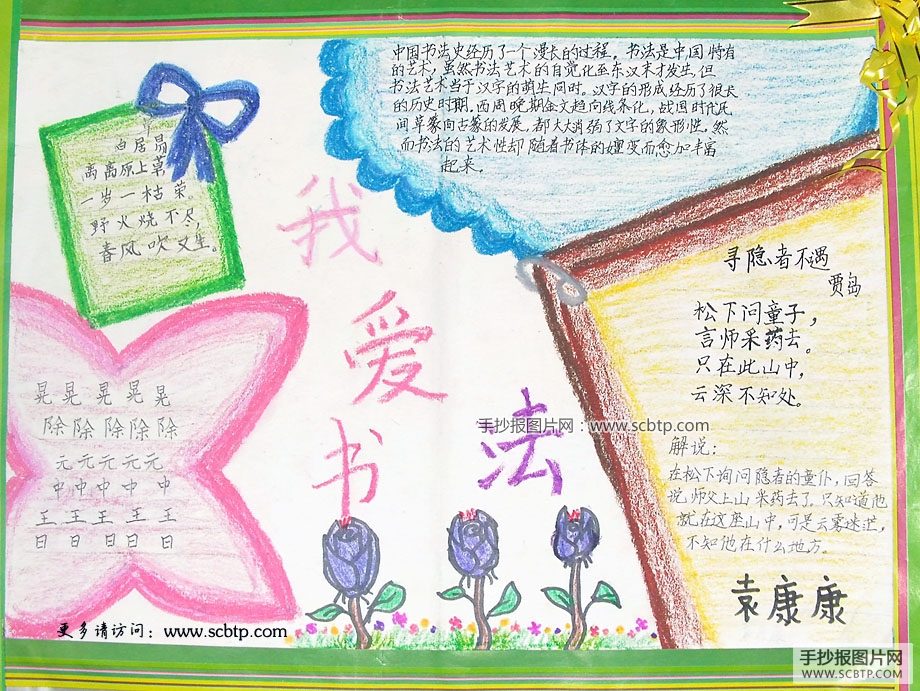 中国书法史经历了一个漫长的过程。书法是中国特有
的艺术，虽然书法艺术的自觉化至东汉末才发生，但
书法艺术当于汉字的萌生同时。汉字的形成经历了很长
的历史时期。西周晚期金文趋向线条化，战国时代民
间草篆向古隶的发展，都大大消弱了文字的象形性。然
而书法的艺术性却随着书体的嬗变而愈加丰富
起来。
白居易
离离原上草
一岁一枯荣。
野火烧不尽，
春风吹又生。
我
爱
书
法
寻隐者不遇
贾岛
松下问童子，
言师采药去。
只在此山中，
云深不知处。
解说：
在松下询问隐者的童仆，回答
说，师父上山采药去了。只知道他
就在这座山中，可是云雾迷茫，
不知他在什么地方。
袁康康
晃晃晃晃晃
除除除除除
元元元元元
中中中中中
王王王王王
日日日日日
手抄报图片网：www.scbtp.com
更多请访问：www.scbtp.com
手抄报图片网
WWW.SCBTP.COM